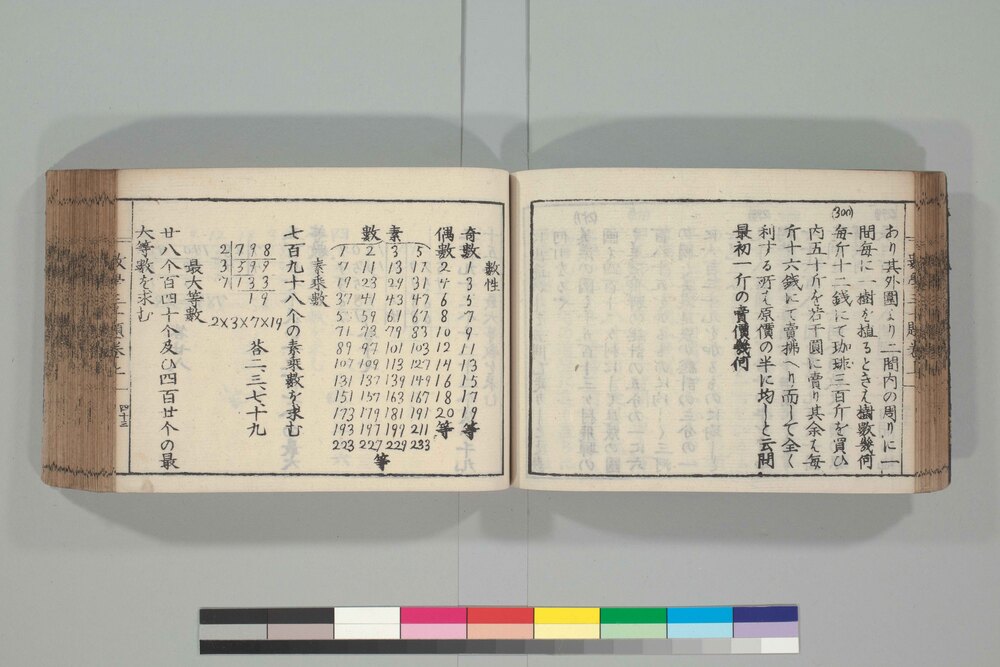 あり其外圍より二間内の周りに一
間每に一樹を植るときえ樹數幾何
(300)
每斤十二錢にて珈琲三百斤を買ひ
内五十斤を若干圓に賣り其余え每
斤十六錢にて賣拂へり而して全く
利する所え原價の半に均しと云問
最初一斤の賣價幾何
數性
奇數 3 5 7 9 11 13 15 17 19 等
偶數 2 4 6 8 10 12 14 16 18 20 等
素數
1 2 3 5
7 11 13 17
19 23 29 31
37 41 43 47
53 59 61 67
71 73 79 83
89 97 101 103
107 109 113 127
131 137 139 149
151 157 163 167
173 179 181 191
193 197 199 211
223 227 229 233
等
素乘數
七百九十八个の素乘數を求む
2 798
3 399
7 133
19
2×3×7×19
荅二、三、七十九
最大等數
廿八个百四十个及ひ四百廿个の最
大等數を求む
四十三